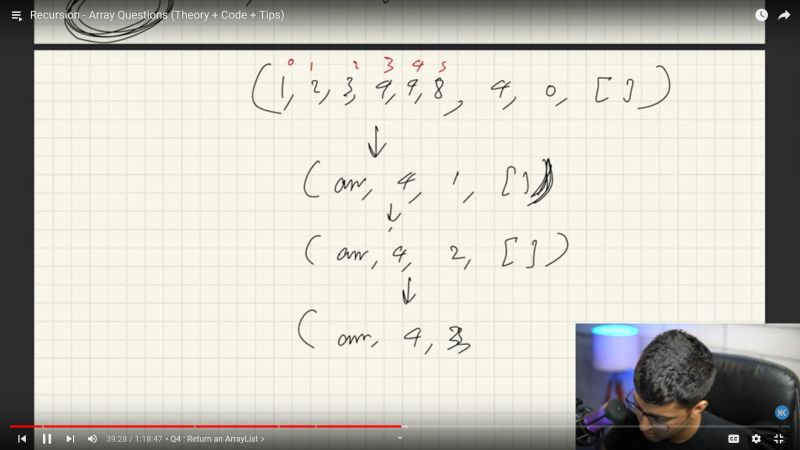 Recursion - Array Questions (Theory + Code + Tips)
0 1 2 3 4 5
(1, 2, 3, 4, 4, 8, 4, 0, [ ])
(arr, 4, 1, [ ])
(arr, 4, 2, [ ])
(arr, 4, 3,
39:28 / 1:18:47 • Q4 : Return an ArrayList >